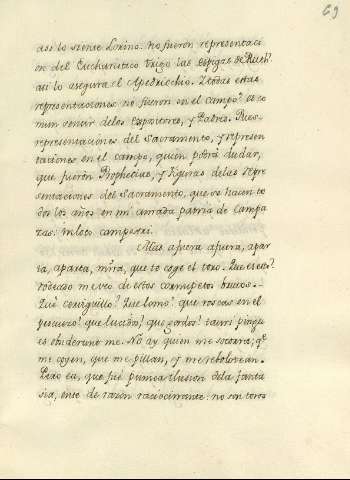 69
asi lo siente Lorino. no fueron representaci
on del Eucharistico trigo las espigas de Ruth?
asi lo asegura el Apedriechio. Y todas estas
representaciones no fueron en el campo? es co
mun sentir de los Expositores, y Padres. Pues
representaciones del Sacramento, y represen
taciones en el campo, quien podrá dudar,
que fueron Prophecias, y figuras de las repre
sentaciones del Sacramento, que se hacen to
dos los años en mi amada patria de Campa
zas: in loto campestri.
Mas afuera afuera, apar
ta, aparta, mira, que te coge el toro. Que es esto?
rodeado me veo de estos cornupetos brutos.
Que cerviguillo! Que lomo! que roscas en el
pescuezo! que lucios! que gordos! tauri pingu
es obsederunt me. No ay quien me socorra; q.e
me cogen, que me pillan, y me rebolotean.
Pero ea, que fué pura ilusion de la fanta
sia, ente de razon raciocinante: no son toros